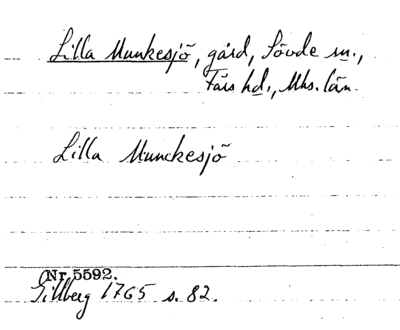 Lilla Munkesjö, gård, Sövde sn.,
Färs hd., Mhs. län.
Lilla Munckesjö
Nr. 5592.
Gillberg 1765 s. 82.